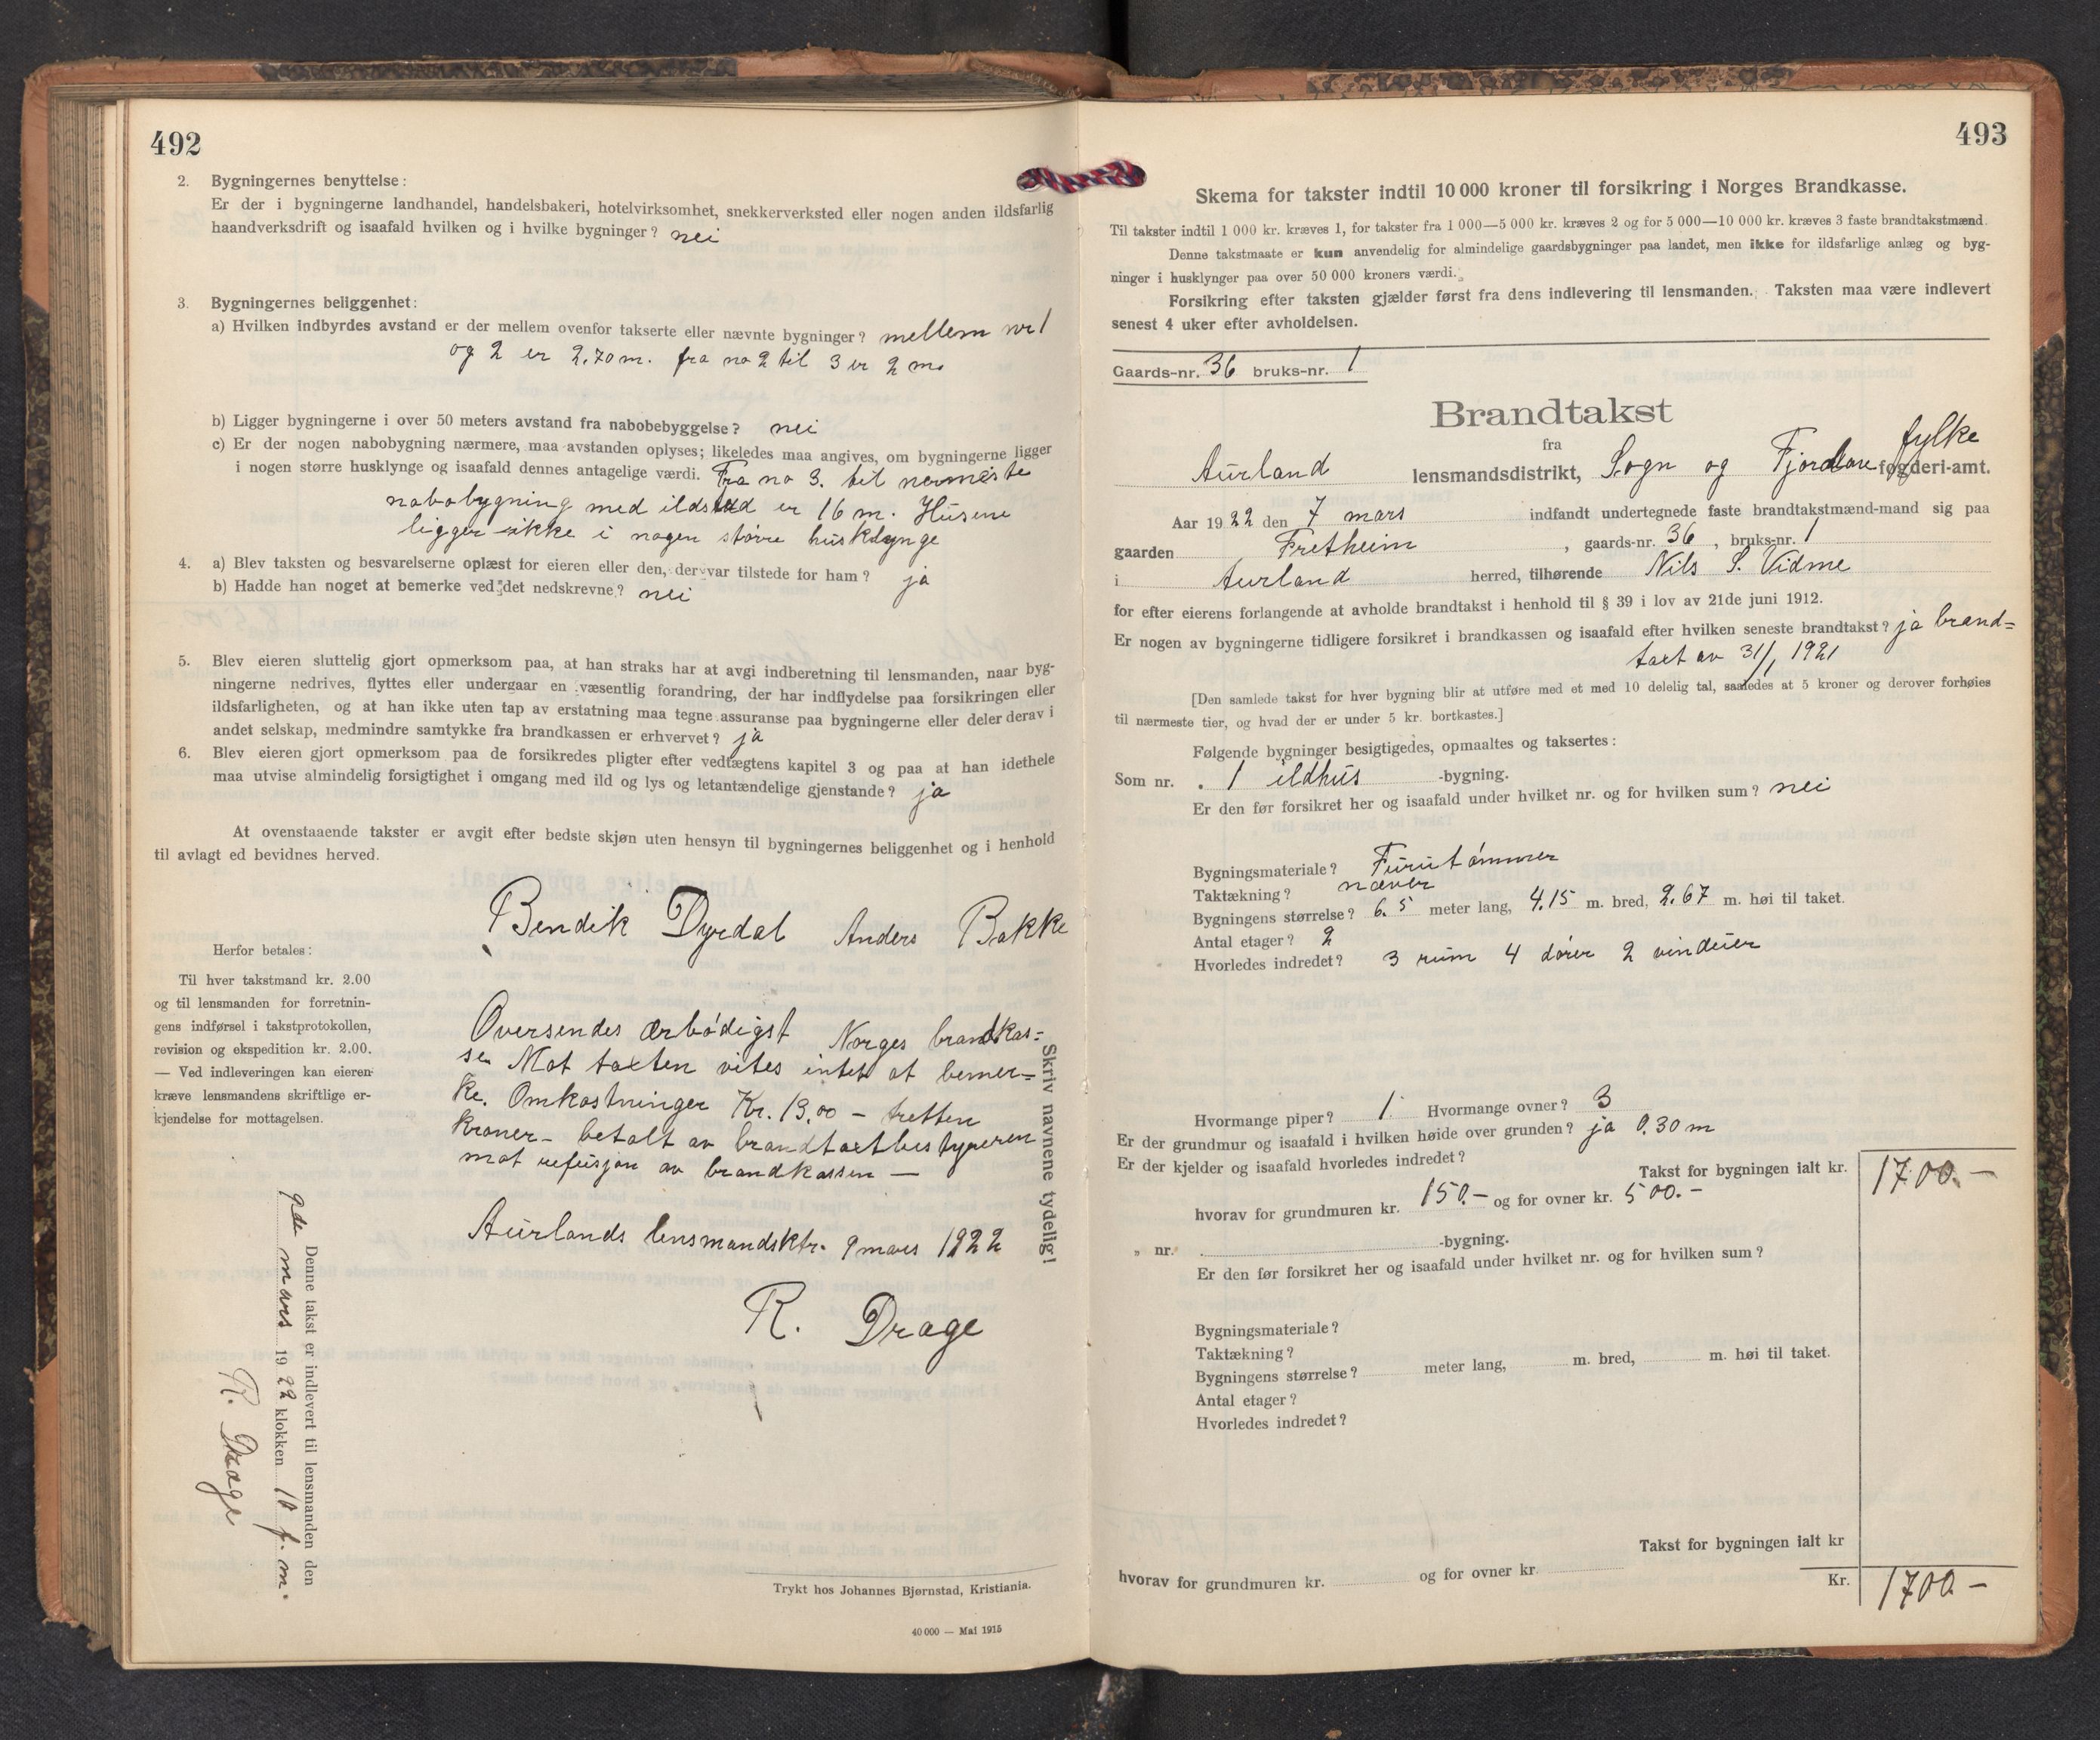 492
2. Bygningernes benyttelse:
Er der i bygningerne landhandel, handelsbakeri, hotelvirksomhet, snekkerverksted eller nogen anden ildsfarlig
haandverksdrift og isaafald hvilken og i hvilke bygninger? nei
3. Bygningernes beliggenhet:
a) Hvilken indbyrdes avstand er der mellem ovenfor takserte eller nævnte bygninger? mellem nr 1
og 2 er 2.70 m. fra no 2 til 3 er 2 m.
b) Ligger bygningerne i over 50 meters avstand fra nabobebyggelse? nei
c) Er der nogen nabobygning nærmere, maa avstanden oplyses; likeledes maa angives, om bygningerne ligger
i nogen større husklynge og isaafald dennes antagelige værdi. Fra no 3. til nermeste
nabobygning med ildsted er 16 m. Husene
ligger ikke i nogen større husklynge
4. a) Blev taksten og besvarelserne oplæst for eieren eller den, der var tilstede for ham? ja
b) Hadde han noget at bemerke ved det nedskrevne? nei
5. Blev eieren sluttelig gjort opmerksom paa, at han straks har at avgi indberetning til lensmanden, naar byg-
ningerne nedrives, flyttes eller undergaar en væsentlig forandring, der har indflydelse paa forsikringen eller
ildsfarligheten, og at han ikke uten tap av erstatning maa tegne assuranse paa bygningerne eller deler derav i
andet selskap, medmindre samtykke fra brandkassen er erhvervet? ja
6. Blev eieren gjort opmerksom paa de forsikredes pligter efter vedtægtens kapitel 3 og paa at han idethele
maa utvise almindelig forsigtighet i omgang med ild og lys og letantændelige gjenstande? ja
At ovenstaaende takster er avgit efter bedste skjøn uten hensyn til bygningernes beliggenhet og i henhold
til avlagt ed bevidnes herved.
Bendik Dyrdal Anders Bakke
Herfor betales:
Til hver takstmand kr. 2.00
og til lensmanden for forretnin-
gens indførsel i takstprotokollen,
revision og ekspedition kr. 2.00.
— Ved indleveringen kan eieren
kræve lensmandens skriftlige er-
kjendelse for mottagelsen.
Oversendes ærbødigst Norges brandkas=
se. Mot taxten vites intet at bemer=
ke. Omkostninger Kr. 13,00 - tretten
kroner - betalt av brandtaxtbestyreren
mot refusjon av brandkassen —
Aurlands lensmandsktr. 9 mars 1922
R. Drage
Skriv navnene tydelig!
Denne takst er indlevert til lensmanden den
9de mars 1922 klokken 10 f. m.
R. Drage
Trykt hos Johannes Bjørnstad, Kristiania.
40 000 — Mai 1915
493
Skema for takster indtil 10 000 kroner til forsikring i Norges Brandkasse.
Til takster indtil 1 000 kr. kræves 1, for takster fra 1 000—5 000 kr. kræves 2 og for 5 000—10 000 kr. kræves 3 faste brandtakstmænd.
Denne takstmaate er kun anvendelig for almindelige gaardsbygninger paa landet, men ikke for ildsfarlige anlæg og byg-
ninger i husklynger paa over 50 000 kroners værdi.
Forsikring efter taksten gjælder først fra dens indlevering til lensmanden. Taksten maa være indlevert
senest 4 uker efter avholdelsen.
Gaards-nr. 36 bruks-nr. 1
Brandtakst
fra
Aurland lensmandsdistrikt, Sogn og Fjordane fylke føgderi-amt.
Aar 1922 den 7 mars indfandt undertegnede faste brandtakstmænd-mand sig paa
gaarden Fretheim, gaards-nr. 36, bruks-nr. 1
i Aurland herred, tilhørende Nils S. Vidme
for efter eierens forlangende at avholde brandtakst i henhold til § 39 i lov av 21de juni 1912.
Er nogen av bygningerne tidligere forsikret i brandkassen og isaafald efter hvilken seneste brandtakst? ja brand=
taxt av 31/1 1921
[Den samlede takst for hver bygning blir at utføre med et med 10 delelig tal, saaledes at 5 kroner og derover forhøies
til nærmeste tier, og hvad der er under 5 kr. bortkastes.]
Følgende bygninger besigtigedes, opmaaltes og taksertes:
Som nr. 1 ildhus -bygning.
Er den før forsikret her og isaafald under hvilket nr. og for hvilken sum? nei
Bygningsmateriale? Furutømmer
Taktækning? næver
Bygningens størrelse? 6.5 meter lang, 4.15 m. bred, 2.67 m. høi til taket.
Antal etager? 2
Hvorledes indredet? 3 rum 4 dører 2 vinduer
Hvormange piper? 1. Hvormange ovner? 3
Er der grundmur og isaafald i hvilken høide over grunden? ja 0.30 m
Er der kjelder og isaafald hvorledes indredet?
Takst for bygningen ialt kr. 1700.-
hvorav for grundmuren kr. 150.- og for ovner kr. 500.-
„ nr. -bygning.
Er den før forsikret her og isaafald under hvilket nr. og for hvilken sum?
Bygningsmateriale?
Taktækning?
Bygningens størrelse? meter lang, m. bred, m. høi til taket.
Antal etager?
Hvorledes indredet?
Takst for bygningen ialt kr
hvorav for grundmuren kr. og for ovner kr.
Kr. 1700.-